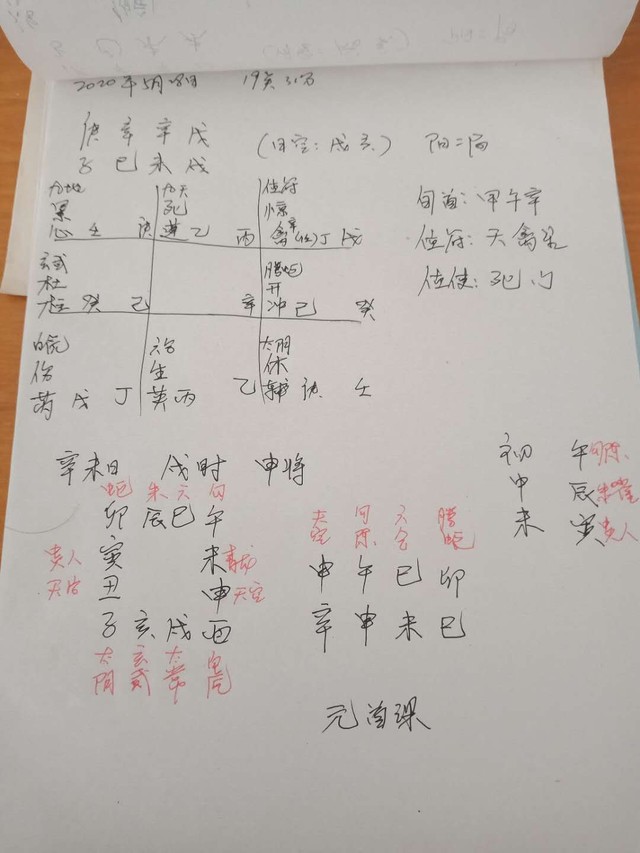 2020年5月28日 19点31分
庚辛辛戌
子巳未戌
(日空:戌亥) 阳二局
旬首:甲午辛
值符:天禽星
值使:死门
九地 九天 值符
景 死 惊
心壬 庚 蓬乙 丙 禽 丁 戊
玄武 腾蛇
杜 开
柱癸 己 辛 冲己 癸
白虎 六合 太阴
伤 生 休
芮戊 丁 英丙 乙 辅庚 壬
辛未日 戌时 申将
蛇 朱 六 勾
卯辰巳午
贵人 寅 未 青龙
丑 申 天空
子亥戌酉
太阴 玄武 太常 白虎
天空 勾陈 六合 腾蛇
申午巳卯
辛申未巳
初 午 勾陈
中 辰 朱雀
末 寅 贵人
元首课